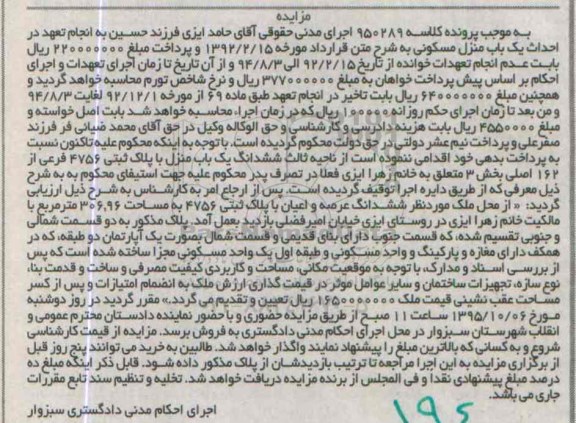 مزایده
به موجب پرونده کلاسه ۹۵۰۲۸۹ اجرای مدنی حقوقی آقای حامد ایزی فرزند حسین به انجام تعهد در
احداث یک باب منزل مسکونی به شرح متن قرارداد مورخه ۱۳۹۲/۲/۱۵ و پرداخت مبلغ ۲۲۰۰۰۰۰۰۰ ریال
بابت عدم انجام تعهدات خوانده از تاریخ ۹۲/۲/۱۵ الی ۹۴/۸/۳ و از آن تاریخ تا زمان اجرای تعهدات و اجرای
احکام بر اساس پیش پرداخت خواهان به مبلغ ۳۷۷۰۰۰۰۰۰ ریال و نرخ شاخص تورم محاسبه خواهد گردید و
همچنین مبلغ ۶۴۰۰۰۰۰۰۰ ریال بابت تاخیر در انجام تعهد طبق ماده ۶۹ از مورخه ۹۲/۱۲/۱ لغایت ۹۴/۸/۳
و من بعد تا زمان اجرای حکم روزانه ریال که در زمان اجراء محاسبه خواهد شد بابت اصل خواسته و
مبلغ ۴۵۵۰۰۰۰۰ ریال بابت هزینه دادرسی و کارشناسی و حق الوکاله وکیل در حق آقای محمد ضیائی فر فرزند
صفرعلی و پرداخت نیم عشر دولتی در حق دولت محکوم گردیده است. با توجه به اینکه محکوم علیه تاکنون نسبت
به پرداخت بدهی خود اقدامی ننموده است از ناحیه ثالث ششدانگ یک باب منزل با پلاک ثبتی ۴۷۵۶ فرعی از
۱۶۲ اصلی بخش ۳ متعلق به خانم زهرا ایزی فعلا در تصرف پدر محکوم علیه جهت استیفای محکوم به به شرح
ذیل معرفی که از طریق دایره اجرا توقیف گردیده است. پس از ارجاع امر به کارشناس به شرح ذیل ارزیابی
گردید: « از محل ملک موردنظر ششدانگ عرصه و اعیان با پلاک ثبتی ۴۷۵۶ به مساحت ۳۰۶,۹۶ مترمربع با
مالکیت خانم زهرا ایزی در روستای ایزی خیابان امیرفضلی بازدید بعمل آمد. پلاک مذکور به دو قسمت شمالی
و جنوبی تقسیم شده، که قسمت جنوب دارای بنای قدیمی و قسمت شمال بصورت یک آپارتمان دو طبقه، که در
همکف دارای مغازه و پارکینگ و واحد مسکونی و طبقه اول یک واحد مسکونی مجزا ساخته شده است که پس
از بررسی اسناد و مدارک، با توجه به موقعیت مکانی، مساحت و کاربردی کیفیت مصرفی و ساخت و قدمت بنا،
نوع سازه، تجهیزات ساختمان و سایر عوامل موثر در قیمت گذاری ارزش ملک به انضمام امتیازات و پس از کسر
مساحت عقب نشینی قیمت ملک ۱۶۵۰۰۰۰۰۰۰ ریال تعیین و تقدیم می گردد.» مقرر گردید در روز دوشنبه
مورخ ۱۳۹۵/۱۰/۰۶ ساعت ۱۱ صبح از طریق مزایده حضوری و با حضور نماینده دادستان محترم عمومی و
انقلاب شهرستان سبزوار در محل اجرای احکام مدنی دادگستری به فروش برسد. مزایده از قیمت کارشناسی
شروع و به کسانی که بالاترین مبلغ را پیشنهاد نمایند واگذار خواهد شد. طالبین به خرید می توانند پنج روز قبل
از برگزاری مزایده به این اجرا مراجعه تا ترتیب بازدیدشان از پلاک مذکور داده شود. قابل ذکر اینکه مبلغ ده
درصد مبلغ پیشنهادی نقدا و فی المجلس از برنده مزایده دریافت خواهد شد. تخلیه و تنظیم سند تابع مقررات
جاری می باشد.
اجرای احکام مدنی دادگستری سبزوار
۱۹۶